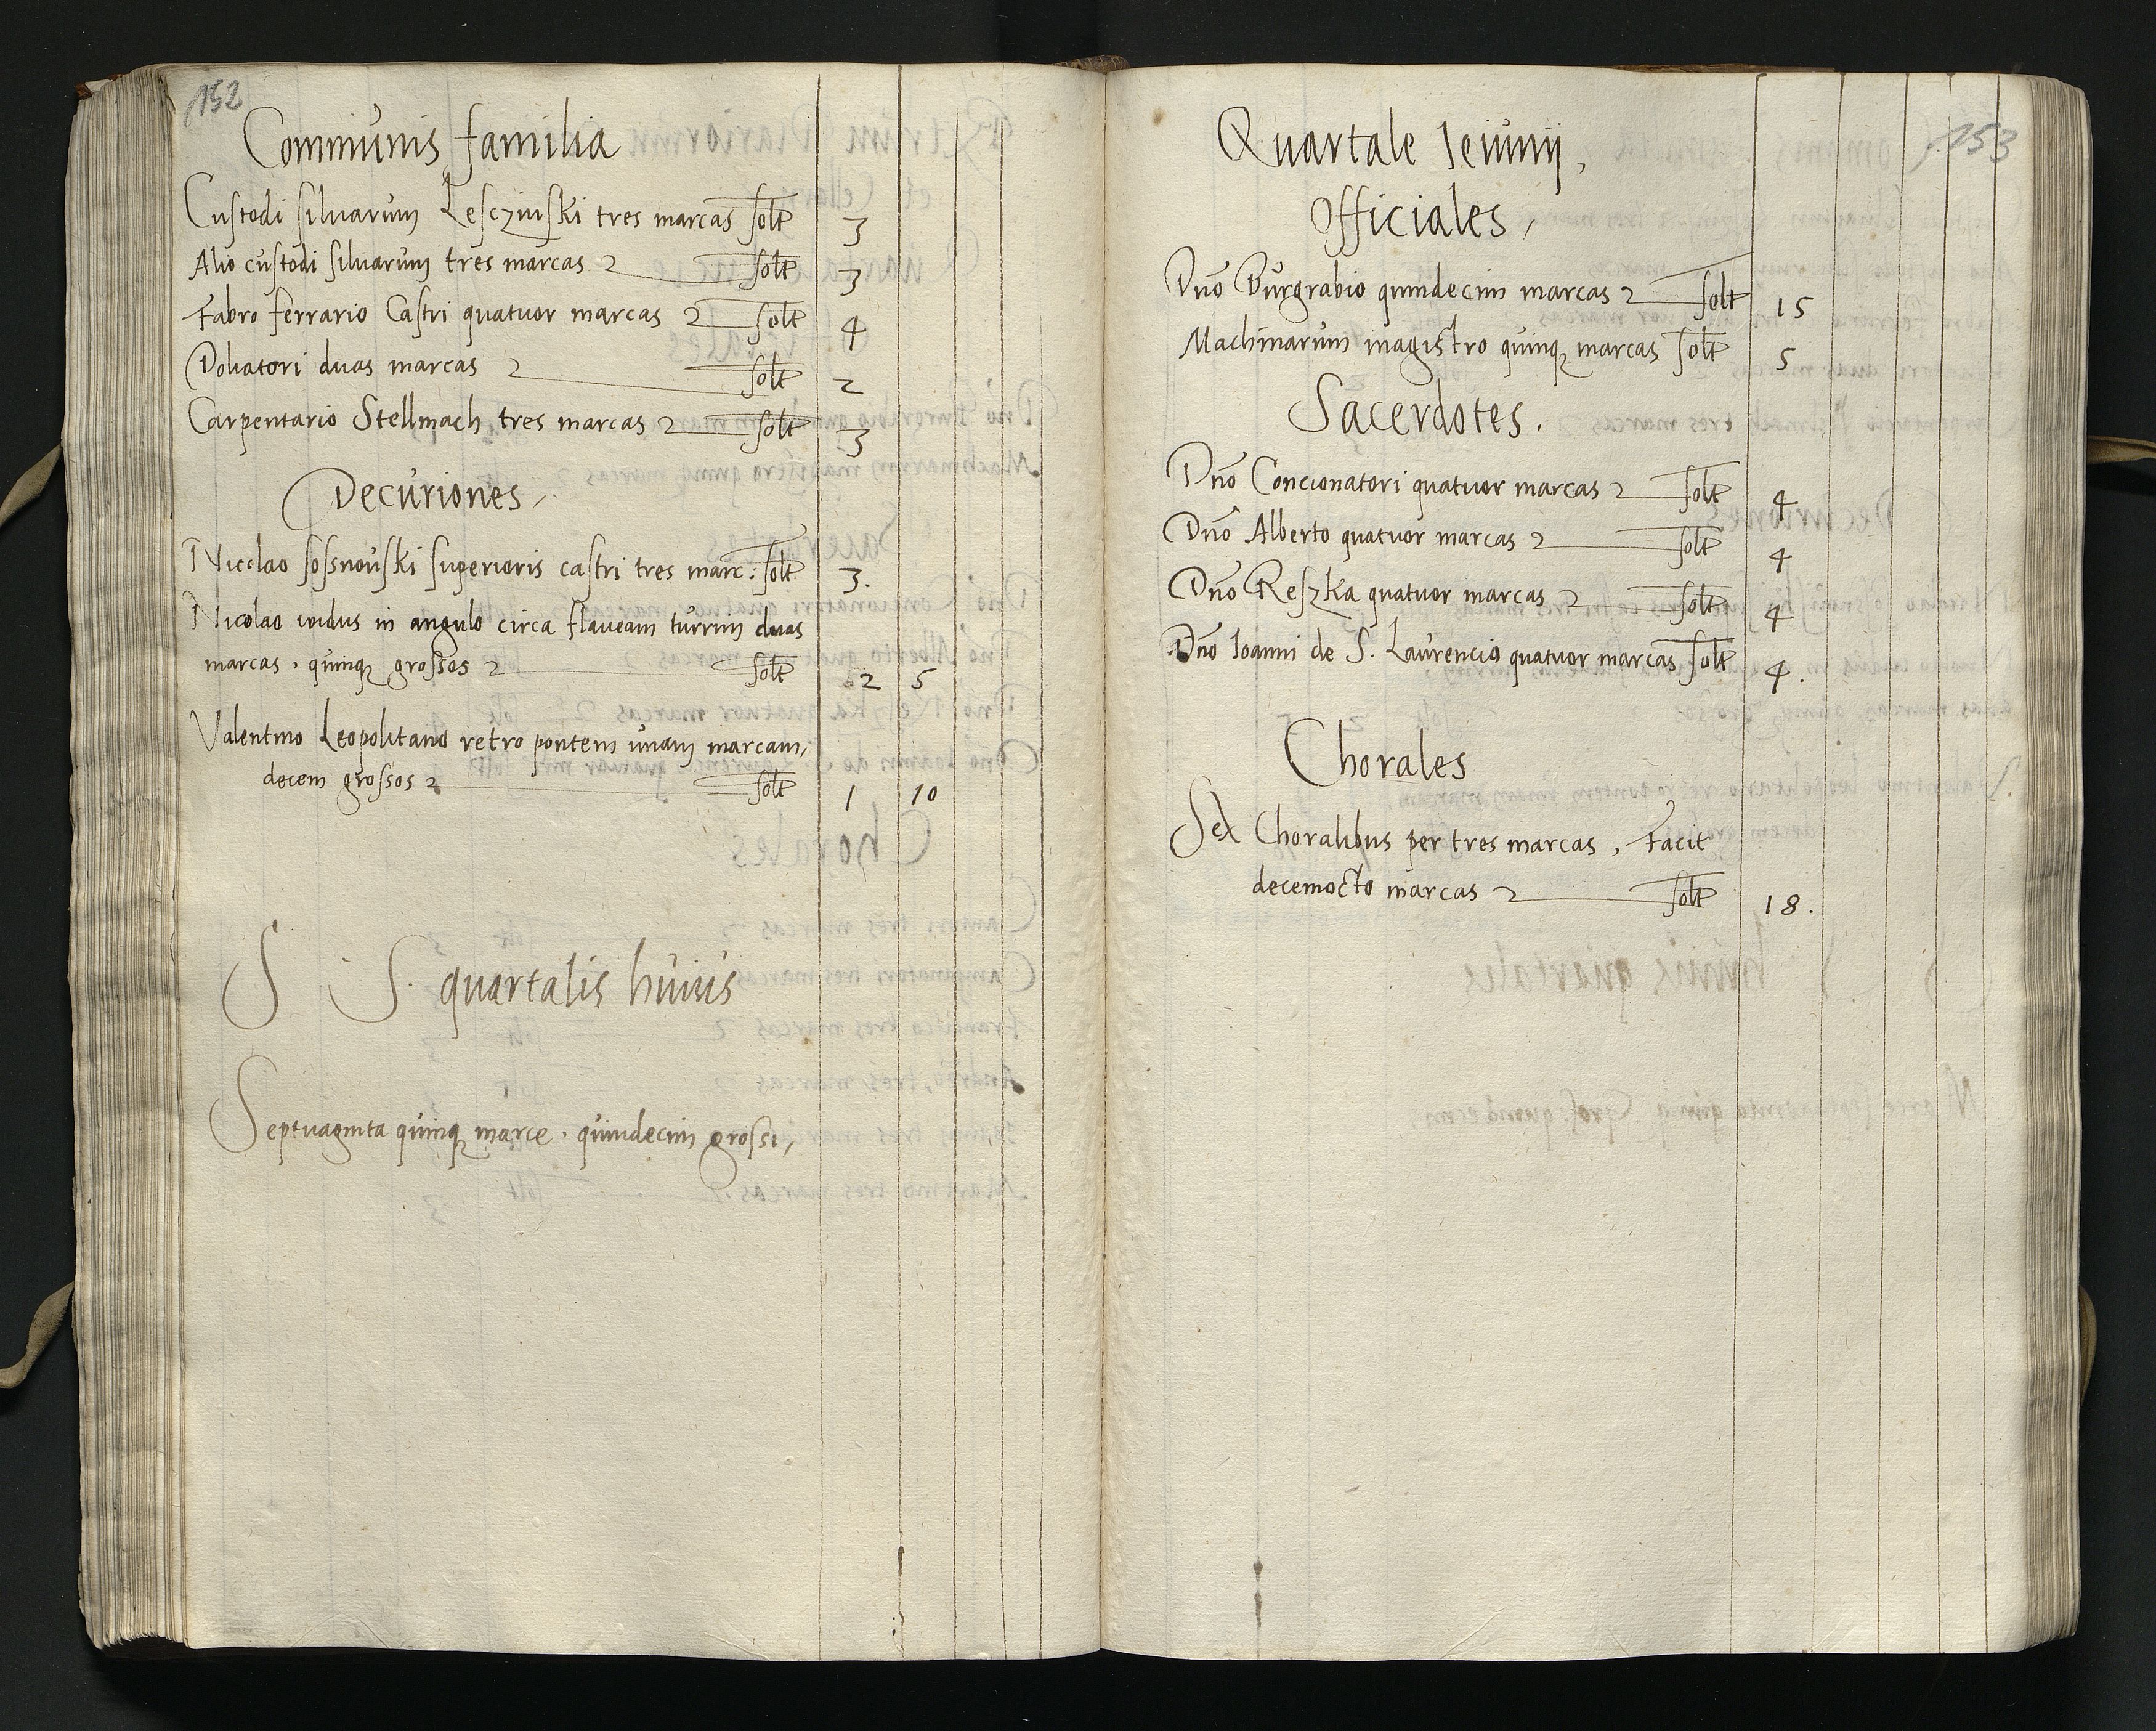 152
Communis familia
Custodi silvarum Lesczinski tres marcas solt 3
Alio custodi silvarum tres marcas solt 3
Fabro ferrario Castri quatuor marcas solt 4
Doliatori duas marcas solt 2
Carpentario Stellmach tres marcas solt 3
Decuriones
Nicolao sossnouski superioris castri tres marc: solt 3.
Nicolao in angulo circa flaveam turrim duas
marcas, quinq grossos solt 2 5
Valentino Leopolitano retro pontem unam marcam,
decem grossos solt 1 10
S S. quartalis huius
Septuaginta quinq marce, quindecim grossi,
153
Quartale Ieiunij,
Officiales,
Dno Burgrabio quindecim marcas solt 15
Machinarum magistro quinq marcas solt 5
Sacerdotes.
Dno Concionatori quatuor marcas solt 4
Dno Alberto quatuor marcas solt 4
Dno Reszka quatuor marcas solt 4
Dno Ioanni de S. Laurencio quatuor marcas solt 4.
Chorales
Sex Choralibus per tres marcas, Facit
decemocto marcas solt 18.